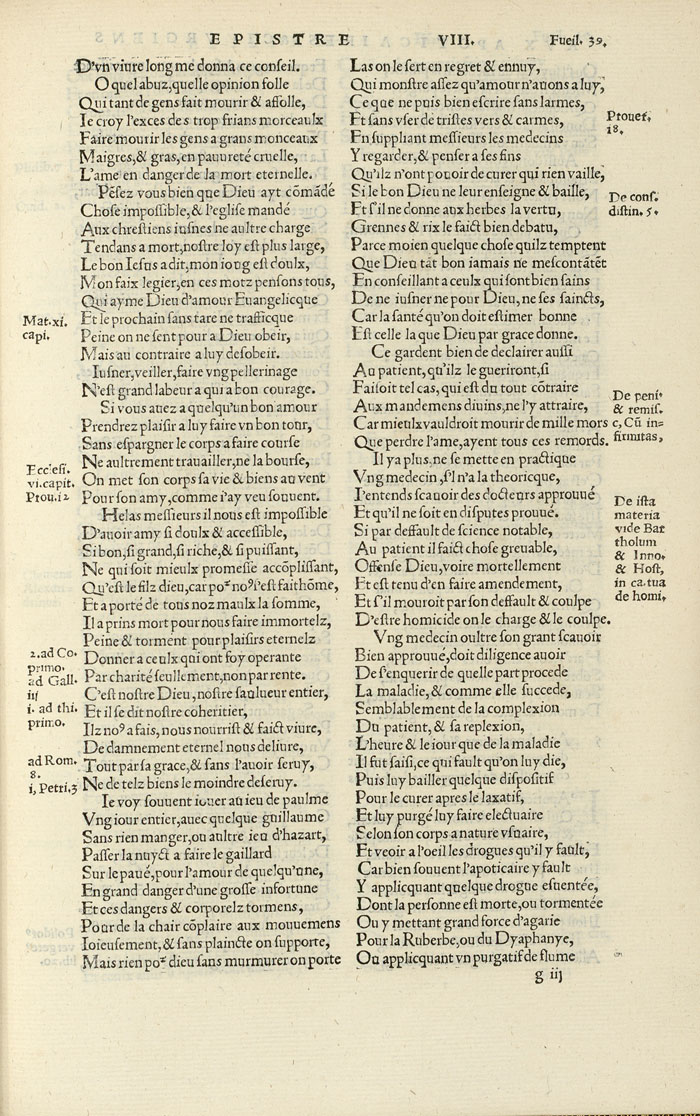 EPISTRE VIII. Fueil. 39.
D'vn viure long me donna ce conseil.
O quel abuz, quelle opinion folle
Qui tant de gens fait mourir & affolle,
Ie croy l'exces des trop frians morceaulx
Faire mourir les gens a grans monceaux
Maigres, & gras, en pauureté cruelle,
L'ame en danger de la mort eternelle.
Pēsez vous bien que Dieu ayt cōmādé
Chose impossible, & l'eglise mandé
Aux chrestiens iusnes ne aultre charge
Tendans a mort, nostre loy est plus large,
Le bon Iesus a dit, mon ioug est doulx,
Mon faix legier, en ces motz pensons tous,
Qui ayme Dieu d'amour Euangelicque
Mat. xi.
capi.
Et le prochain sans tare ne trafficque
Peine on ne sent pour a Dieu obeir,
Mais au contraire a luy desobeir.
Iusner, veiller, faire vng pellerinage
N'est grand labeur a qui a bon courage.
Si vous auez a quelqu'un bon amour
Prendrez plaisir a luy faire vn bon tour,
Sans espargner le corps a faire course
Ne aultrement trauailler, ne la bourse,
Ecclesi.
vi. capit.
Prou. 12
On met son corps sa vie & biens au vent
Pour son amy, comme i'ay veu souuent.
Helas messieurs il nous est impossible
D'auoir amy si doulx & accessible,
Si bon, si grand, si riche, & si puissant,
Ne qui soit mieulx promesse accōplissant,
Qu'est le filz dieu, car poᵣ noꝰ s'est faict hōme,
Et a porté de tous noz maulx la somme,
Il a prins mort pour nous faire immortelz,
Peine & torment pour plaisirs eternelz
2. ad Co.
primo.
ad Gall.
iij
i. ad thi.
primo.
Donner a ceulx qui ont foy operante
Par charité seullement, non par rente.
C'est nostre Dieu, nostre saulueur entier,
Et il se dit nostre coheritier,
Ilz noꝰ a fais, nous nourrist & faict viure,
De damnement eternel nous deliure,
ad Rom.
8.
i, Petri. 3
Tout par sa grace, & sans l'auoir seruy,
Ne de telz biens le moindre deseruy.
Ie voy souuent iouer au ieu de paulme
Vng iour entier, auec quelque guillaume
Sans rien manger, ou aultre ieu d'hazart,
Passer la nuyct a faire le gaillard
Sur le paué, pour l'amour de quelqu'une,
En grand danger d'une grosse infortune
Et ces dangers & corporelz tormens,
Pour de la chair cōplaire aux mouuemens
Ioieusement, & sans plaincte on supporte,
Mais rien poᵣ dieu sans murmurer on porte
Las on le sert en regret & ennuy,
Qui monstre assez qu'amour n'auons a luy,
Ce que ne puis bien escrire sans larmes,
Et sans vser de tristes vers & carmes,
Prouer.
18.
En suppliant messieurs les medecins
Y regarder, & penser a ses fins
Qu'ilz n'ont pouoir de curer qui rien vaille,
Si le bon Dieu ne leur enseigne & baille,
De cons.
distin. 5.
Et s'il ne donne aux herbes la vertu,
Grennes & rix le faict bien debatu,
Parce moien quelque chose quilz temptent
Que Dieu tāt bon iamais ne mescontātēt
En conseillant a ceulx qui sont bien sains
De ne iusner ne pour Dieu, ne ses saincts,
Car la santé qu'on doit estimer bonne
Est celle la que Dieu par grace donne.
Ce gardent bien de declairer aussi
Au patient, qu'ilz le gueriront, si
Faisoit tel cas, qui est du tout cōtraire
De peni.
& remis.
c, Cū in=
firmitas,
Aux mandemens diuins, ne l'y attraire,
Car mieulx vauldroit mourir de mille mors
Que perdre l'ame, ayent tous ces remords.
Il ya plus, ne se mette en practique
Vng medecin, s'l n'a la theoricque,
I'entends scauoir des docteurs approuué
Et qu'il ne soit en disputes prouué.
De ista
materia
vide Bar
tholum
& Inno.
& Host,
in ca. tua
de homi.
Si par deffault de science notable,
Au patient il faict chose greuable,
Offense Dieu, voire mortellement
Et est tenu d'en faire amendement,
Et s'il mouroit par son deffault & coulpe
D'estre homicide on le charge & le coulpe.
Vng medecin oultre son grant scauoir
Bien approuué, doit diligence auoir
De s'enquerir de quelle part procede
La maladie, & comme elle succede,
Semblablement de la complexion
Du patient, & sa replexion,
L'heure & le iour que de la maladie
Il fut saisi, ce qui fault qu'on luy die,
Puis luy bailler quelque dispositif
Pour le curer apres le laxatif,
Et luy purgé luy faire electuaire
Selon son corps a nature vsuaire,
Et veoir a l'oeil les drogues qu'il y fault,
Car bien souuent l'apoticaire y fault
Y applicquant quelque drogue esuentée,
Dont la personne est morte, ou tormentée
Ou y mettant grand force d'agarie
Pour la Ruberbe, ou du Dyaphanye,
Ou applicquant vn purgatif de flume
g iij